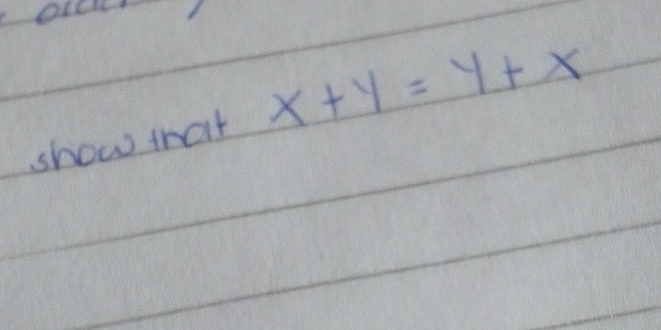 show that x + y = y + x